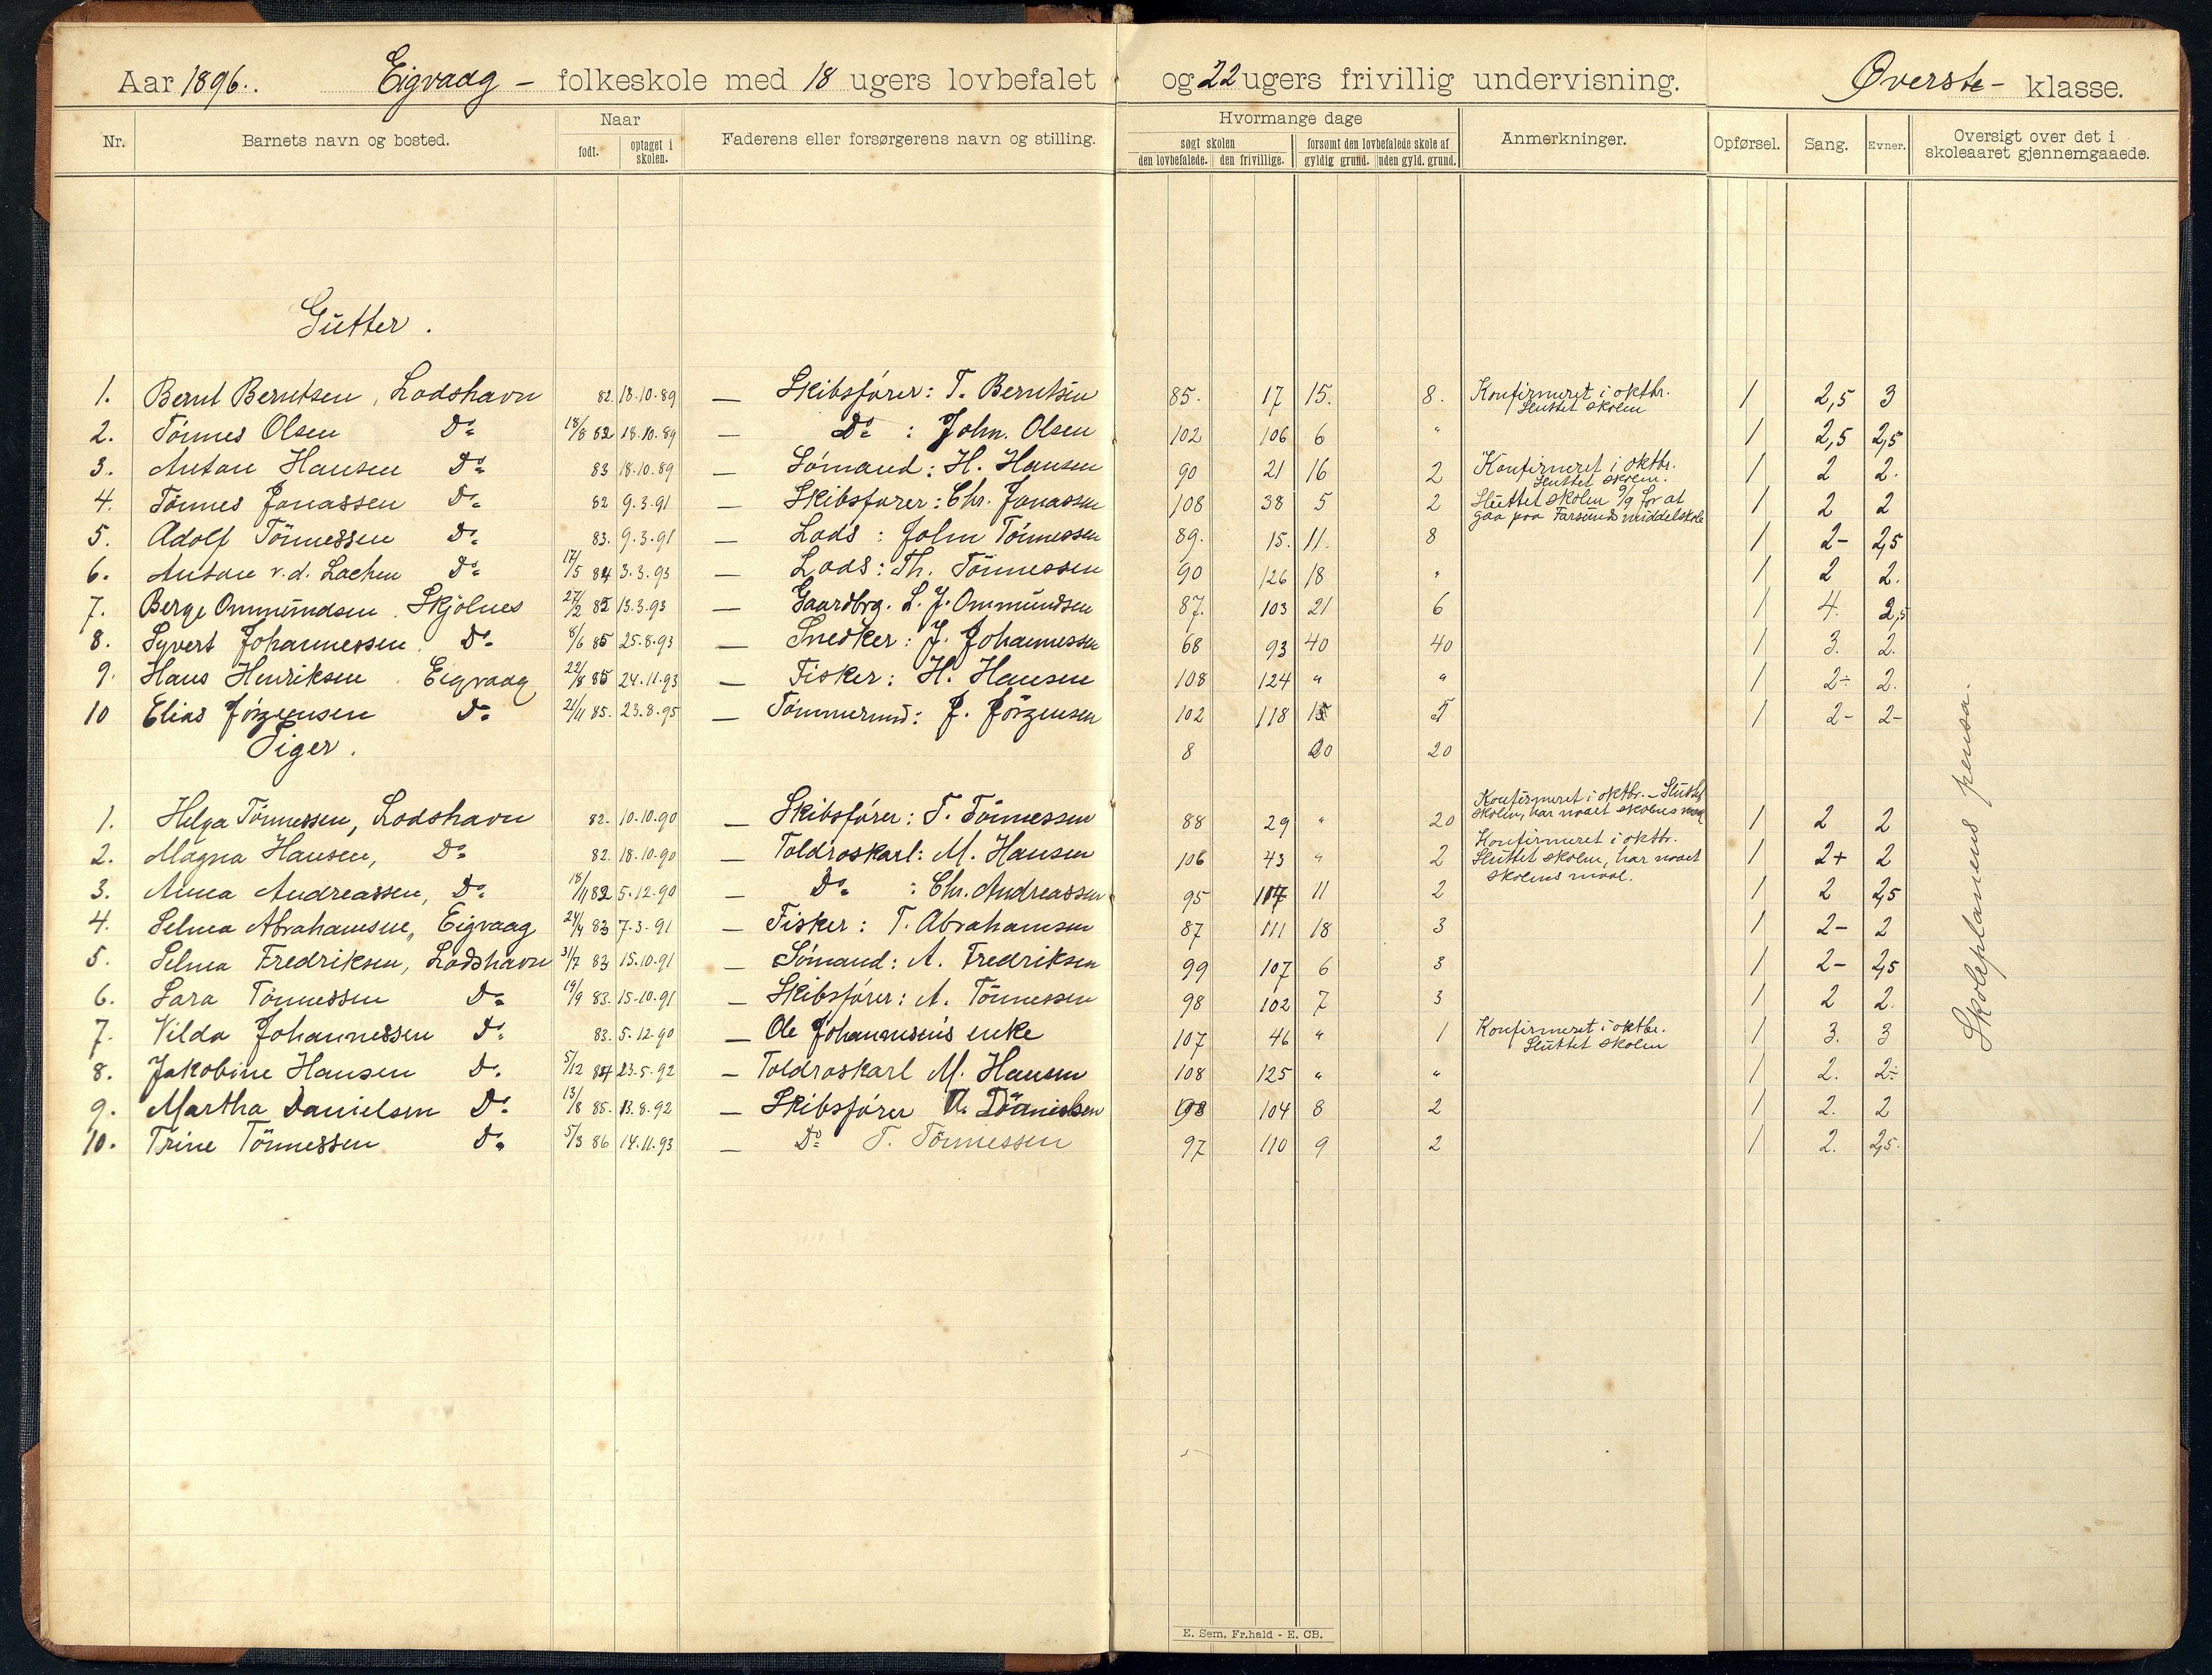 Aar 1896. Eigvaag - folkeskole med 18 ugers lovbefalet og 22 ugers frivillig undervisning. Øverste - klasse.
Nr. Barnets navn og bosted. Naar født. optaget i skolen. Faderens eller forsørgerens navn og stilling. Hvormange dage søgt skolen den lovbefalede. den frivillige. forsømt den lovbefalede skole af gyldig grund. uden gyld. grund. Anmerkninger. Opførsel. Sang. Evner. Oversigt over det i skoleaaret gjennemgaaede.
Gutter.
1. Bernt Berntsen, Lodshavn 82. 18.10.89 — Skibsfører: T. Berntsen 85. 17 15. 8. Konfirmeret i oktbr. Sluttet skolen 1 2,5 3
2. Tönnes Olsen Do 18/8 82 18.10.89 — Do : John. Olsen 102 106 6 " 1 2,5 2,5
3. Anton Hansen Do 83 18.10.89 — Sömand: H. Hansen 90 21 16 2 Konfirmeret i oktbr. Sluttet skolen. 1 2 2.
4. Tönnes Jonassen Do 82 9.3.91 — Skibsfører: Chr. Jonassen 108 38 5 2 Sluttet skolen 9/9 for at gaa paa Farsunds middelskole 1 2 2
5. Adolf Tönnessen Do 83. 9.3.91 — Lods : John Tönnessen 89. 15. 11. 8 1 2- 2,5
6. Anton v.d. Lochen Do 17/5 84 3.3.93 — Lods: Th. Tönnessen 90 126 18 " 1 2 2.
7. Berge Ommundsen. Skjolnes 27/2 82 13.3.93 — Gaardbrg. L. J. Ommundsen 87. 103 21 6 1 4. 2,5
8. Syvert Johannessen. Do 8/6 85 25.8.93 — Snedker: J. Johannessen 68 93 40 40 1 3. 2.
9. Hans Henriksen. Eigvaag 22/8 85 24.11.93 — Fisker: H. Hansen 108 124 " " 1 2÷ 2.
10 Elias Jörgensen Do 21/11 85. 23.8.95 — Tömmermd: J. Jörgensen 102 118 15 5 1 2- 2-
Piger. 8 20 20
1. Helga Tönnessen, Lodshavn 82. 10.10.90 — Skibsfører: T. Tönnessen 88 29 " 20 Konfirmeret i oktbr. - Sluttet skolen, har naaet skolens maal 1 2 2
2. Magna Hansen, Do 82. 18.10.90 — Toldroskarl: M. Hansen 106 43 " 2 Konfirmeret i oktbr. Sluttet skolen, har naaet skolens maal. 1 2+ 2
3. Anna Andreassen, Do 18/11 82 5.12.90 — Do : Chr. Andreassen 95 107 11 2 1 2 2,5
4. Selma Abrahamsen, Eigvaag 24/4 83 7.3.91 — Fisker: T. Abrahamsen 87 111 18 3 1 2- 2
5. Selma Fredriksen, Lodshavn 31/7 83 15.10.91 — Sömand: A. Fredriksen 99 107 6 3 1 2- 2,5
6. Sara Tönnessen Do 19/9 83. 15.10.91 — Skibsfører: A. Tönnessen 98 102 7 3 1 2 2.
7. Vilda Johannessen Do 83. 5.12.90 — Ole Johannesens enke 107 46 " 1 Konfirmeret i oktbr. Sluttet skolen 1 3. 3
8. Jakobine Hansen Do 5/12 84 23.5.92 — Toldroskarl M. Hansen 108 125 " " 1 2. 2÷
9. Martha Danielsen Do 13/8 85. 13.8.92 — Skibsfører Danielsen 98 104 8 2 1 2. 2
10. Trine Tönnessen Do 5/3 86 14.11.93 — Do T. Tönnessen 97 110 9 2 1 2. 2,5.
Skoleplanens pensa.
E. Sem, Fr.hald - E. CB.